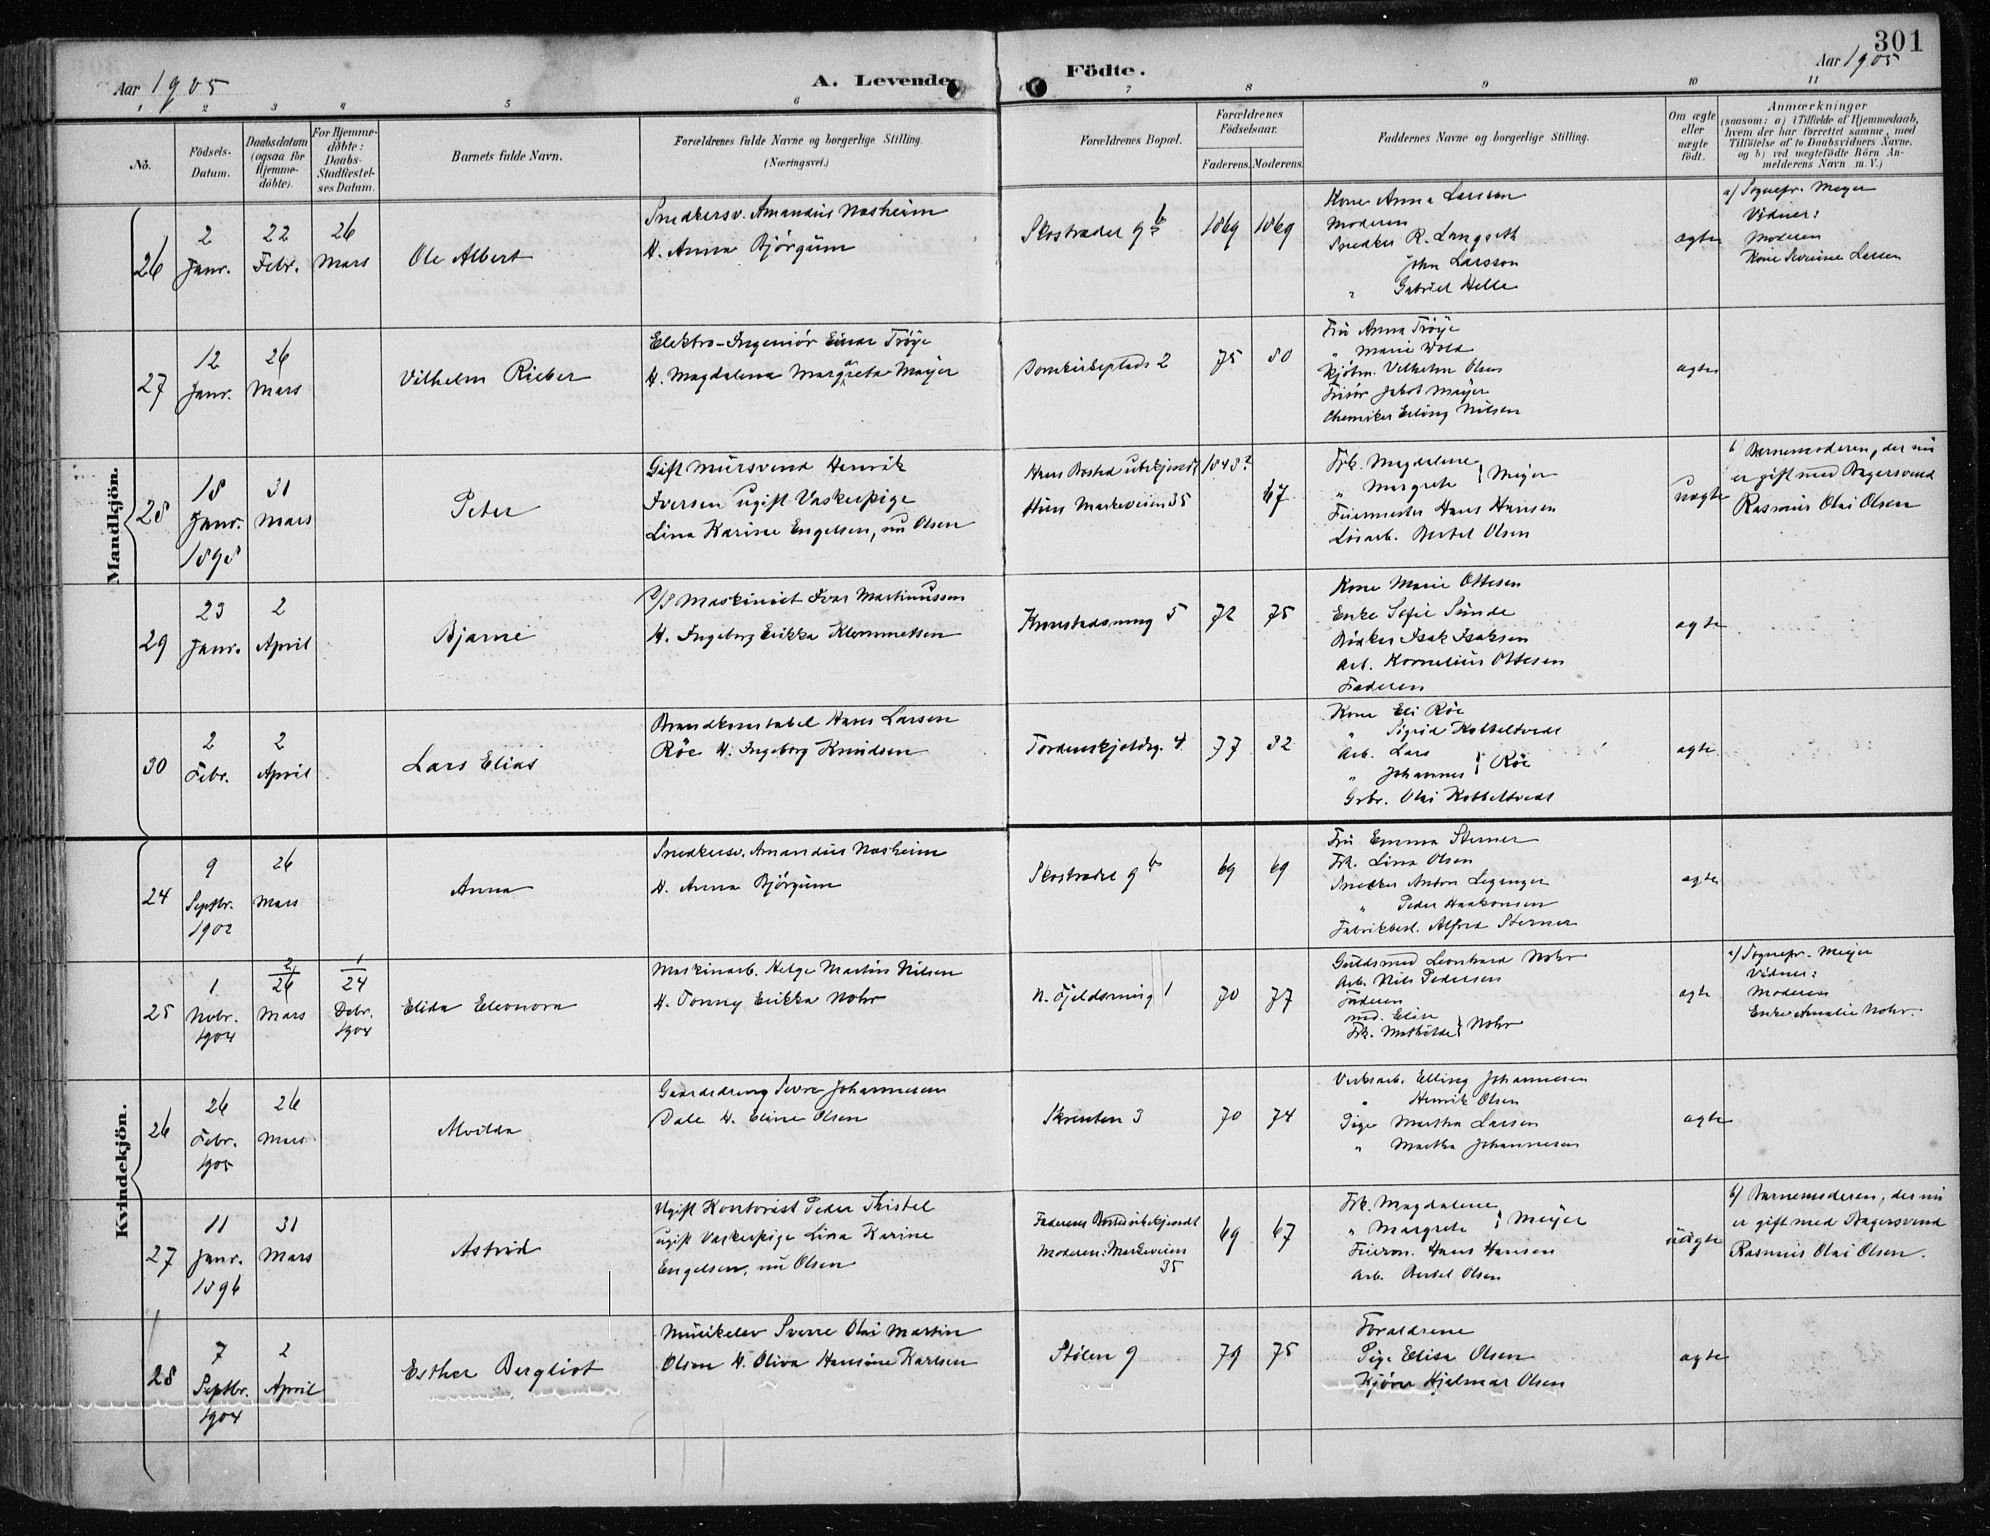 301
Aar 1905
A. Levende Födte.
Aar 1905
1 2 3 4 5 6 7 8 9 10 11
No.
Födsels-Datum.
Daabsdatum (ogsaa for Hjemmedöbte).
For Hjemmedöbte: Daabs-Stadfæstelses Datum.
Barnets fulde Navn.
Forældrenes fulde Navne og borgerlige Stilling.
(Næringsvei.)
Forældrenes Bopæl.
Forældrenes Födselsaar.
Faderens. Moderens.
Faddernes Navne og borgerlige Stilling.
Om ægte eller uægte födt.
Anmærkninger
(saasom: a) i Tilfælde af Hjemmedaab, hvem der har forrettet samme, med Tilföielse af to Daabsvidners Navne, og b) ved uægtefödte Börn Anmelderens Navn m. V.)
Mandkjön.
26
2 Janr.
22 Febr.
26 Mars
Ole Albert
Snedkersv. Amandus Nasheim
H. Anna Bjørgum
Skostrædet 9b
1869 1869
Kone Anna Larsen
Moderen
Snedker R. Langseth
John Larsson
" Gabriel Helle
ægte
a) Sognepr. Meyer
Vidner:
Moderen
Kone Severine Larsen
27
12 Janr.
26 Mars
Vilhelm Rieber
Elektro-Ingeniør Einar Trøye
H. Magdalena Margreta Meyer
Domkirkeplads 2
75 80
Fru Anna Trøye
" Marie Wold
Kjøbm. Vilhelm Olsen
Frisør Jakob Meyer
Chemiker Erling Nilsen
ægte
28
18 Janr. 1898
31 Mars
Peter
Gift Mursvend Henrik
Iversen ugift Vaskerpige
Lina Karine Engelsen, nu Olsen
Hans Bosted ubekjendt
Hun: Markeveien 35
1848? 67
Frk. Magdalene
" Margrete } Meyer
Feiermester Hans Hansen
Løsarb. Bertel Olsen
uægte
b) Barnemoderen, der nu
er gift med Bagersvend
Rasmus Olai Olsen
29
23 Janr.
2 April
Bjarne
D/S Maskinist Ivar Martinussen
H. Ingeborg Erikka Klemmetsen
Kronstadsmug 5
72 75
Kone Marie Ottesen
Enke Sofie Sunde
Bødker Isak Isaksen
Arb. Kornelius Ottesen
Faderen
ægte
30
2 Febr.
2 April
Lars Elias
Brandkonstabel Hans Larsen
Röe H. Ingeborg Knudsen
Tordenskjoldsg. 4
77 82
Kone Eli Röe
" Sigrid Kobbeltvedt
Arb. Lars
" Johannes } Röe
Grbr. Olai Kobbeltvedt
ægte
Kvindekjön.
24
9 Septbr. 1902
26 Mars
Anna
Snedkersv. Amandus Nasheim
H. Anna Bjørgum
Skostrædet 9b
69 69
Fru Emma Sterner
Frk. Lina Olsen
Snedker Anton Leganger
" Peder Haakonsen
Fabrikbest. Alfred Sterner
ægte
25
1 Nobr. 1904
2/26 Mars
1/24 Debr. 1904
Elida Eleonora
Maskinarb. Helge Martin Nilsen
H. Tonny Erikka Nohr
N. Fjeldsmug 1
70 77
Guldsmed Leonhard Nohr
Arb. Nils Pedersen
Faderen
Mad. Elise
Frk. Mathilde } Nohr
ægte
a) Sognepr. Meyer
Vidner:
Moderen
Enke Amalie Nohr.
26
26 Febr. 1905
26 Mars
Alvilda
Gaardsdreng Sevre Johannesen
Dale H. Eline Olsen
Skrenten 3
70 74
Verksarb. Elling Johannesen
" Henrik Olsen
Pige Martha Larsen
" Martha Johannesen
ægte
27
11 Janr. 1896
31 Mars
Astrid
Ugift Kontorist Peder Thistel
ugift Vaskerpige Lina Karine
Engelsen, nu Olsen
Faderens Bosted ubekjendt
Moderen: Markeveien 35
69 67
Frk. Magdalene
" Margrete } Meyer
Feierm. Hans Hansen
Arb. Bertel Olsen
uægte
b) Barnemoderen, der nu
er gift med Bagersvend
Rasmus Olai Olsen.
28
7 Septbr. 1904
2 April
Esther Bergliot
Musikelev Sverre Olai Martin
Olsen H. Oliva Hansine Karlsen
Stølen 9
79 75
Forældrene
Pige Elisa Olsen
Kjører Hjalmar Olsen
ægte